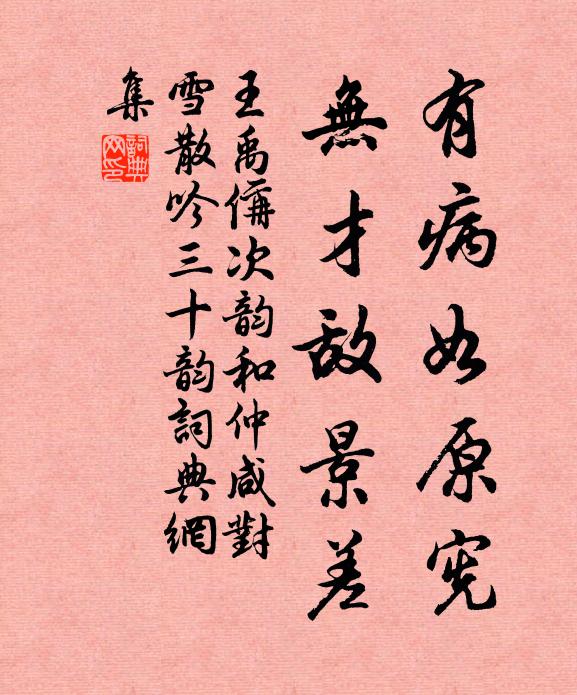 有病如原宪
無才敌景差
王禹偁次韵和仲咸對
雪散吟三十韵詞典網
集
詞典
网印